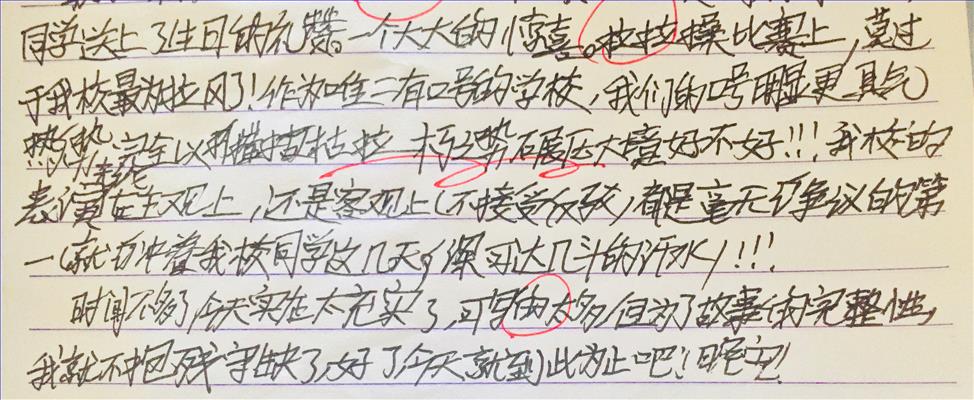 同学送上了生日的礼赞。一个大大的惊喜。拉拉操比赛上，莫过
于我校最为拉风了！作为唯二有口号的学校，我们的口号明显更具气
热势，完全以摧枯拉朽之势碾压大境好不好！！！我校的
表演在主观上，还是客观上（不接受反驳）都是毫无争议的第
一（就冲着我校同学这几天练习达几斗的汗水）！！！
时间不够了，今天实在太充实了，可写的太多，但为了故事的完整性，
我就不抱残守缺了，好了今天就到此为止吧！晚安！